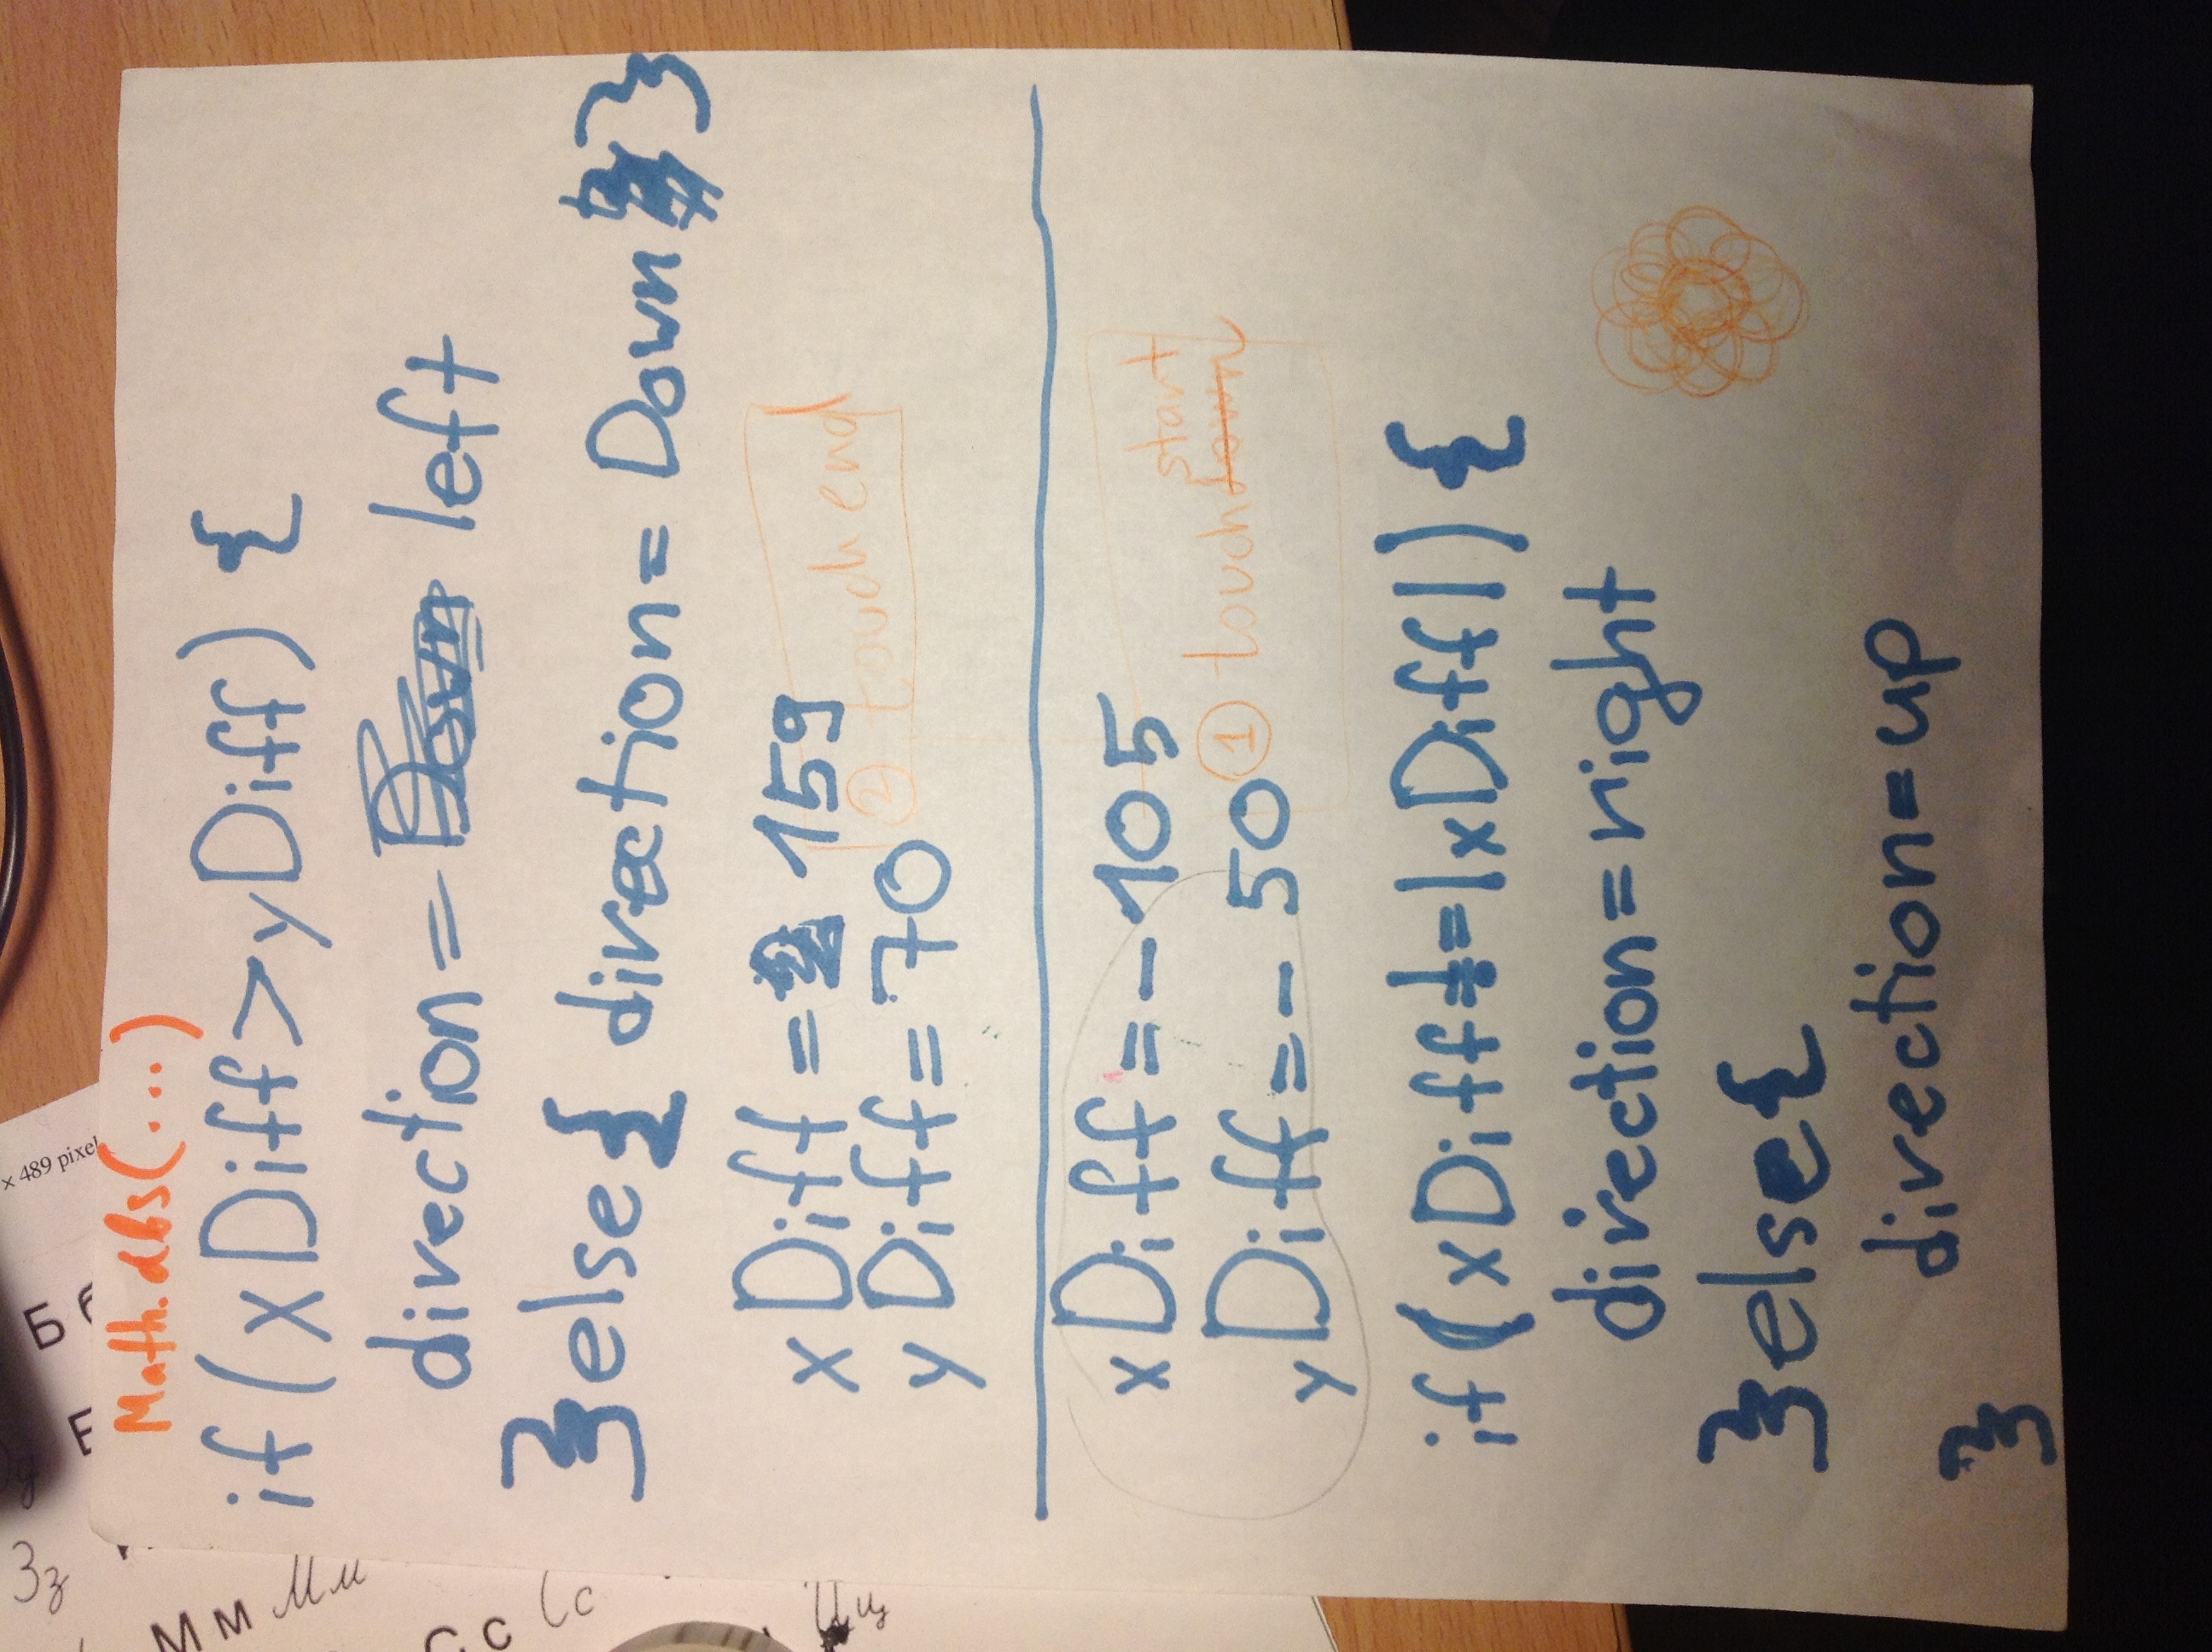 × 489 pixel
Б
Е
З з
М м М м
С с С с
Math.abs(...)
if (xDiff>yDiff) {
direction = Down left
}else{ direction = Down }
xDiff = 159
yDiff = 70
② touch end
xDiff = -105
yDiff = - 50
start
① touchdown
if (xDiff != |xDiff|) {
direction = right
}else{
direction = up
}